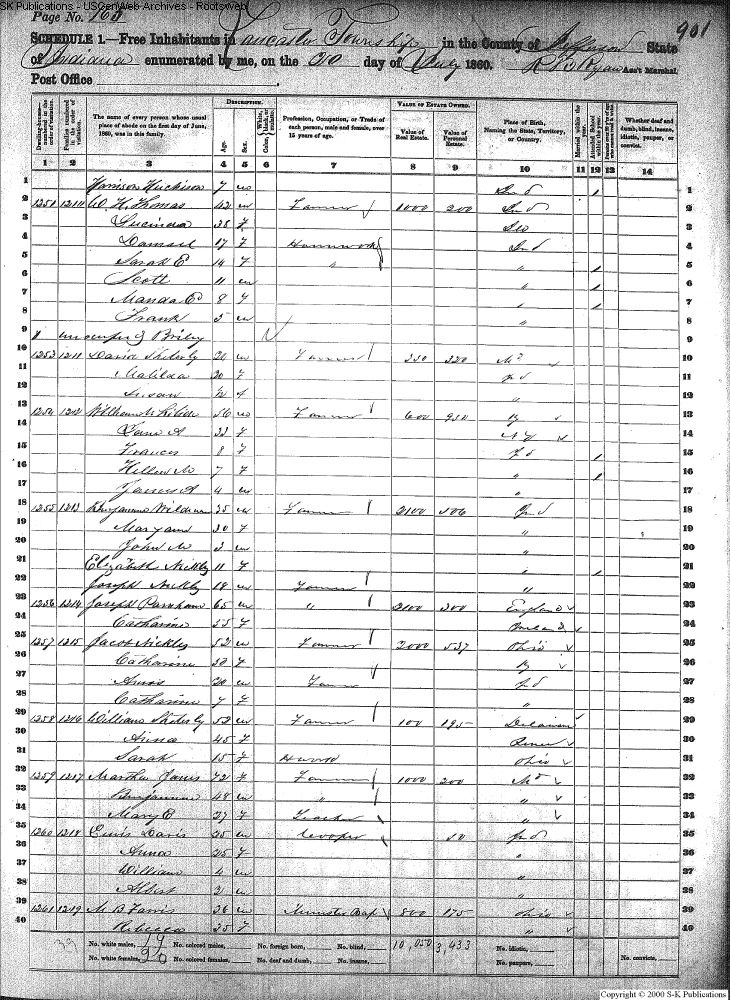 SK Publications - USGenWeb Archives - Rootsweb
Page No. 165
901
SCHEDULE 1.—Free Inhabitants in Lancaster Township in the County of Jefferson State
of Indiana enumerated by me, on the 20 day of July 1860. Ryan Ass't Marshal.
Post Office
DESCRIPTION. VALUE OF ESTATE OWNED.
Dwelling-houses—numbered in the order of visitation. Families numbered in the order of visitation. The name of every person whose usual place of abode on the first day of June, 1860, was in this family. Age. Sex. Color, White, black, or mulatto. Profession, Occupation, or Trade of each person, male and female, over 15 years of age. Value of Real Estate. Value of Personal Estate. Place of Birth, Naming the State, Territory, or Country. Married within the year. Attended School within the year. Persons over 20 y'rs of age who cannot read & write. Whether deaf and dumb, blind, insane, idiotic, pauper, or convict.
1 2 3 4 5 6 7 8 9 10 11 12 13 14
1 Harrison 7 m Ind 1 1
2 1251 1210 W. H. Thomas 42 m Farmer 1000 200 Ind 2
3 Lucinda 38 f 3
4 Damari 17 f Housework Ind 4
5 Sarah E 14 f " " 1 5
6 Scott 11 m " 1 6
7 Manda E 8 f " 1 7
8 Frank 5 m " 8
9 9
10 1253 1211 David 20 m Farmer 250 320 Md 10
11 Matilda 20 f Ind 11
12 Susan f " 12
13 1254 1212 William 56 m Farmer 600 950 Ky 13
14 Jane A 33 f N Y 14
15 Frances 8 f Ind 1 15
16 Hellen M 7 f " 1 16
17 James A 4 m " 17
18 1255 1213 Benjamin 35 m Farmer 2100 506 Ind 18
19 Mary ann 30 f " 19
20 John M 3 m " 20
21 Elizabeth Nickles 11 f " 1 21
22 Joseph Nickles 18 m Farmer " 22
23 1256 1214 Joseph Parnham 65 m " 2100 300 England 23
24 Catharine 55 f Ireland 24
25 1257 1215 Jacob Nickles 52 m Farmer 2000 537 Ohio 25
26 Catharine f Ky 26
27 20 m Farmer Ind 27
28 Catharine 7 f " 28
29 1258 1216 William 52 m Farmer 100 195 Delaware 29
30 Anna 45 f 30
31 Sarah 15 f Ohio 31
32 1259 1217 Martha Davis 72 f Farmer 1000 200 Md 32
33 Benjamin 48 m " " 33
34 Mary E 27 f Teacher " 34
35 1260 1218 Davis 25 m Cooper 50 Ind 35
36 Anna 25 f " 36
37 William 4 m " 37
38 Albert 2 m " 38
39 1261 1219 M B Faris 36 m Minister Bap 800 175 Ohio 39
40 Rebecca 35 f " 40
No. white males, 19 No. colored males, No. foreign born, No. blind, 10,050 3,433 No. idiotic,
No. white females, 20 No. colored females, No. deaf and dumb, No. insane, No. paupers, No. convicts,
Copyright © 2000 S-K Publications